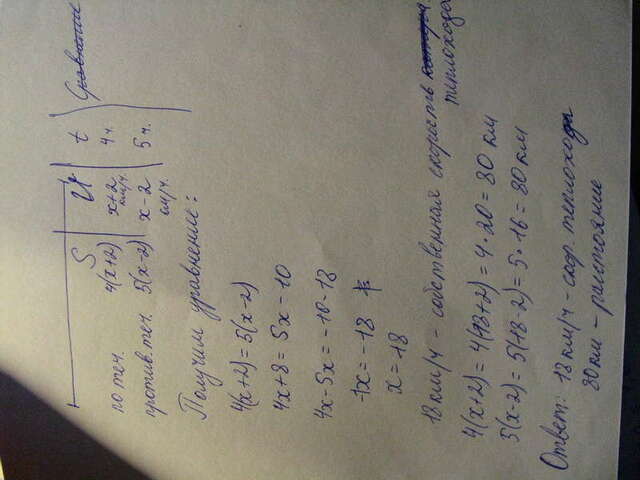 S v t
по теч. 4(x+2) x+2 км/ч. 4 ч.
против теч. 5(x-2) x-2 км/ч. 5 ч.
Получим уравнение:
4(x+2)=5(x-2)
4x+8=5x-10
4x-5x=-10-18
-1x=-18
x=18
18 км/ч - собственная скорость
теплохода
4(x+2)=4(18+2)=4·20=80 км
5(x-2)=5(18-2)=5·16=80 км
Ответ: 18 км/ч - теплохода
80 км - расстояние